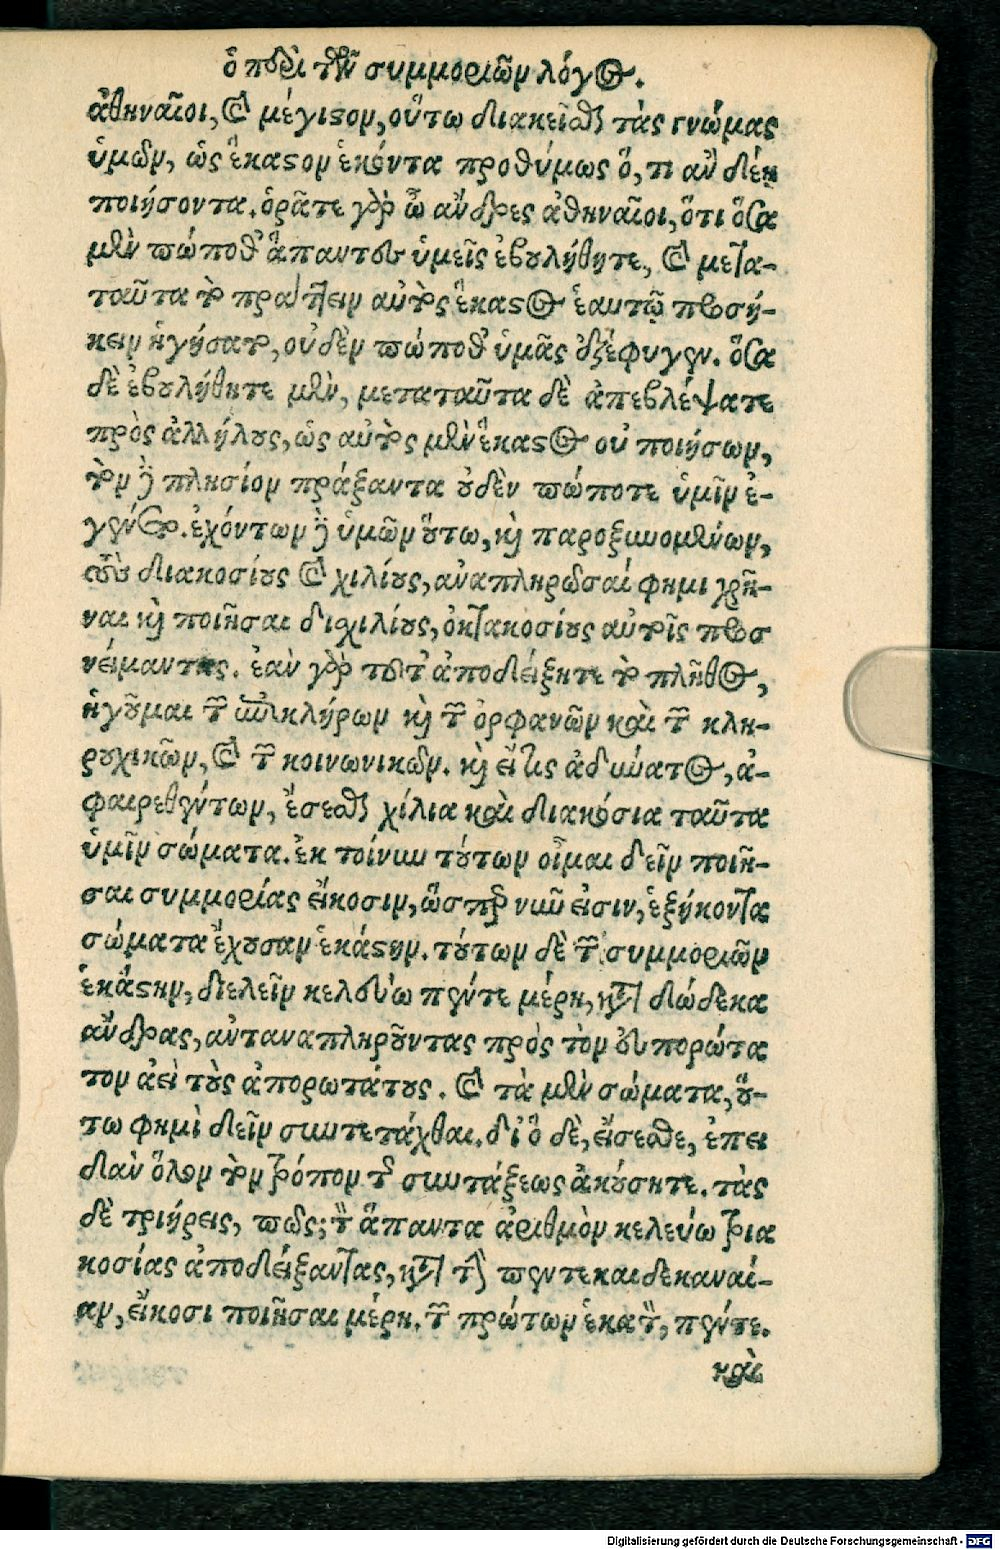 ὁ περὶ τῶν συμμοριῶν λόγος.
ἀθηναῖοι, καὶ μέγιστον, οὕτω διακεῖσθαι τὰς γνώμας
ὑμῶν, ὡς ἕκαστον ἑκόντα προθύμως ὅ, τι ἂν δέῃ
ποιήσοντα. ὁρᾶτε γὰρ ὦ ἄνδρες ἀθηναῖοι, ὅτι ὅσα
μὲν πώποθ' ἅπαντες ὑμεῖς ἐβουλήθητε, καὶ μετα-
ταῦτα τὸ πράττειν αὐτὸς ἕκαστος ἑαυτῷ προσή-
κειν ἡγήσατο, οὐδὲν πώποθ' ὑμᾶς ἐξέφυγεν. ὅσα
δὲ ἐβουλήθητε μὲν, μεταταῦτα δὲ ἀπεβλέψατε
πρὸς ἀλλήλους, ὡς αὐτὸς μὲν ἕκαστος οὐ ποιήσων,
τὸν δὲ πλησίον πράξαντα οὐδὲν πώποτε ὑμῖν ἐ-
γένετο. ἐχόντων δὲ ὑμῶν οὕτω, καὶ παροξυνομένων,
τοὺς διακοσίους καὶ χιλίους, ἀναπληρῶσαί φημι χρῆ-
ναι καὶ ποιῆσαι διχιλίους, ὀκτακοσίους αὐτοῖς προσ
νείμαντας. ἐὰν γὰρ τοῦτ' ἀποδείξητε τὸ πλῆθος,
ἡγοῦμαι τῶν ἐπικλήρων καὶ τῶν ὀρφανῶν καὶ τῶν κλη-
ρουχικῶν, καὶ τῶν κοινωνικῶν. καὶ εἴ τις ἀδύνατος, ἀ-
φαιρεθέντων, ἔσεσθαι χίλια καὶ διακόσια ταῦτα
ὑμῖν σώματα. ἐκ τοίνυν τούτων οἶμαι δεῖν ποιῆ-
σαι συμμορίας εἴκοσιν, ὥσπερ νῦν εἰσιν, ἑξήκοντα
σώματα ἔχουσαν ἑκάστην. τούτων δὲ τῶν συμμοριῶν
ἑκάστην, διελεῖν κελεύω πέντε μέρη, κατὰ δώδεκα
ἄνδρας, ἀνταναπληροῦντας πρὸς τὸν εὐπορώτα
τον ἀεὶ τοὺς ἀπορωτάτους. καὶ τὰ μὲν σώματα, οὕ-
τω φημὶ δεῖν συντετάχθαι. δι' ὃ δὲ, εἴσεσθε, ἐπει
δὰν ὅλον τὸν τρόπον τῆς συντάξεως ἀκούσητε. τὰς
δὲ τριήρεις, πῶς; τὸν ἅπαντα ἀριθμὸν κελεύω τρια
κοσίας ἀποδείξαντας, κατὰ τὴν πεντεκαιδεκαναί-
αν, εἴκοσι ποιῆσαι μέρη. τῶν πρώτων ἑκατὸν, πέντε.
καὶ
Digitalisierung gefördert durch die Deutsche Forschungsgemeinschaft - DFG